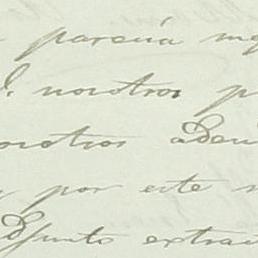 parecía
nosotros p
nosotros adem
por este
Adjunto extrac